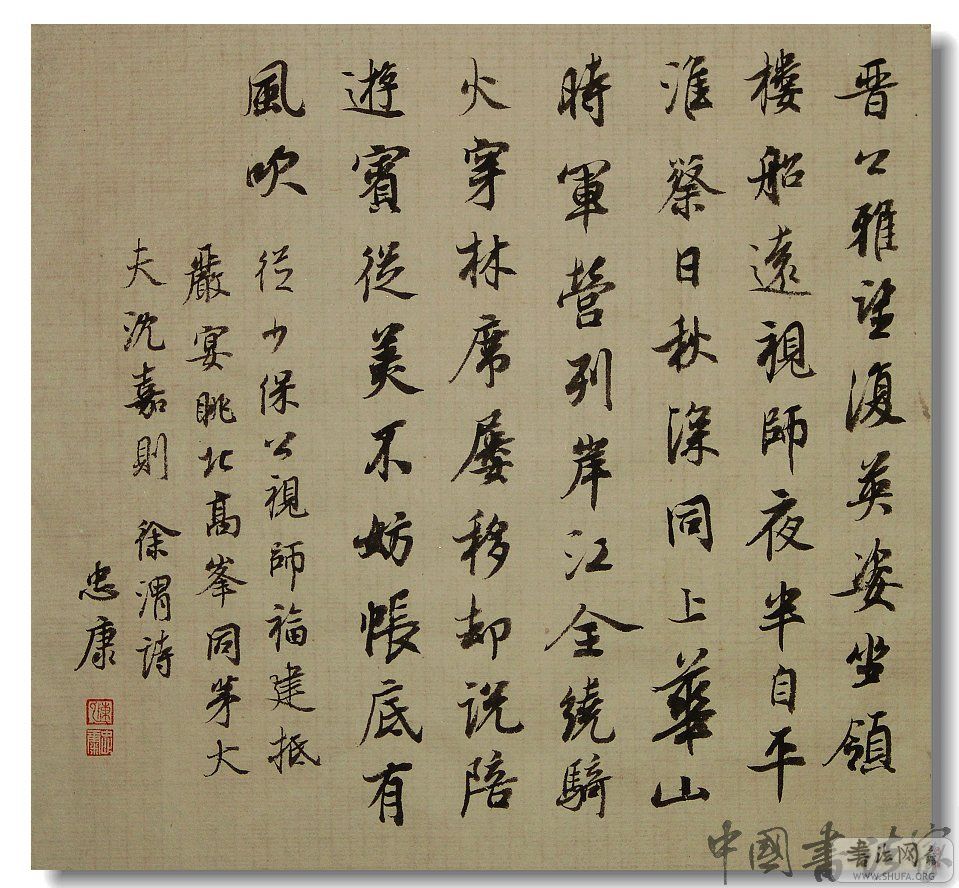 晋公雅望復英姿坐領
樓船遠視師夜半自平
淮蔡日秋深同上華山
時軍營列岸江全繞騎
火穿林席屡移却説陪
遊賓從美不妨帳底有
風吹
從少保公視師福建抵
嚴宴眺北高峯同茅大
夫沈嘉則 徐渭詩
忠康
中國書法家
書法网
WWW.SHUFA.ORG